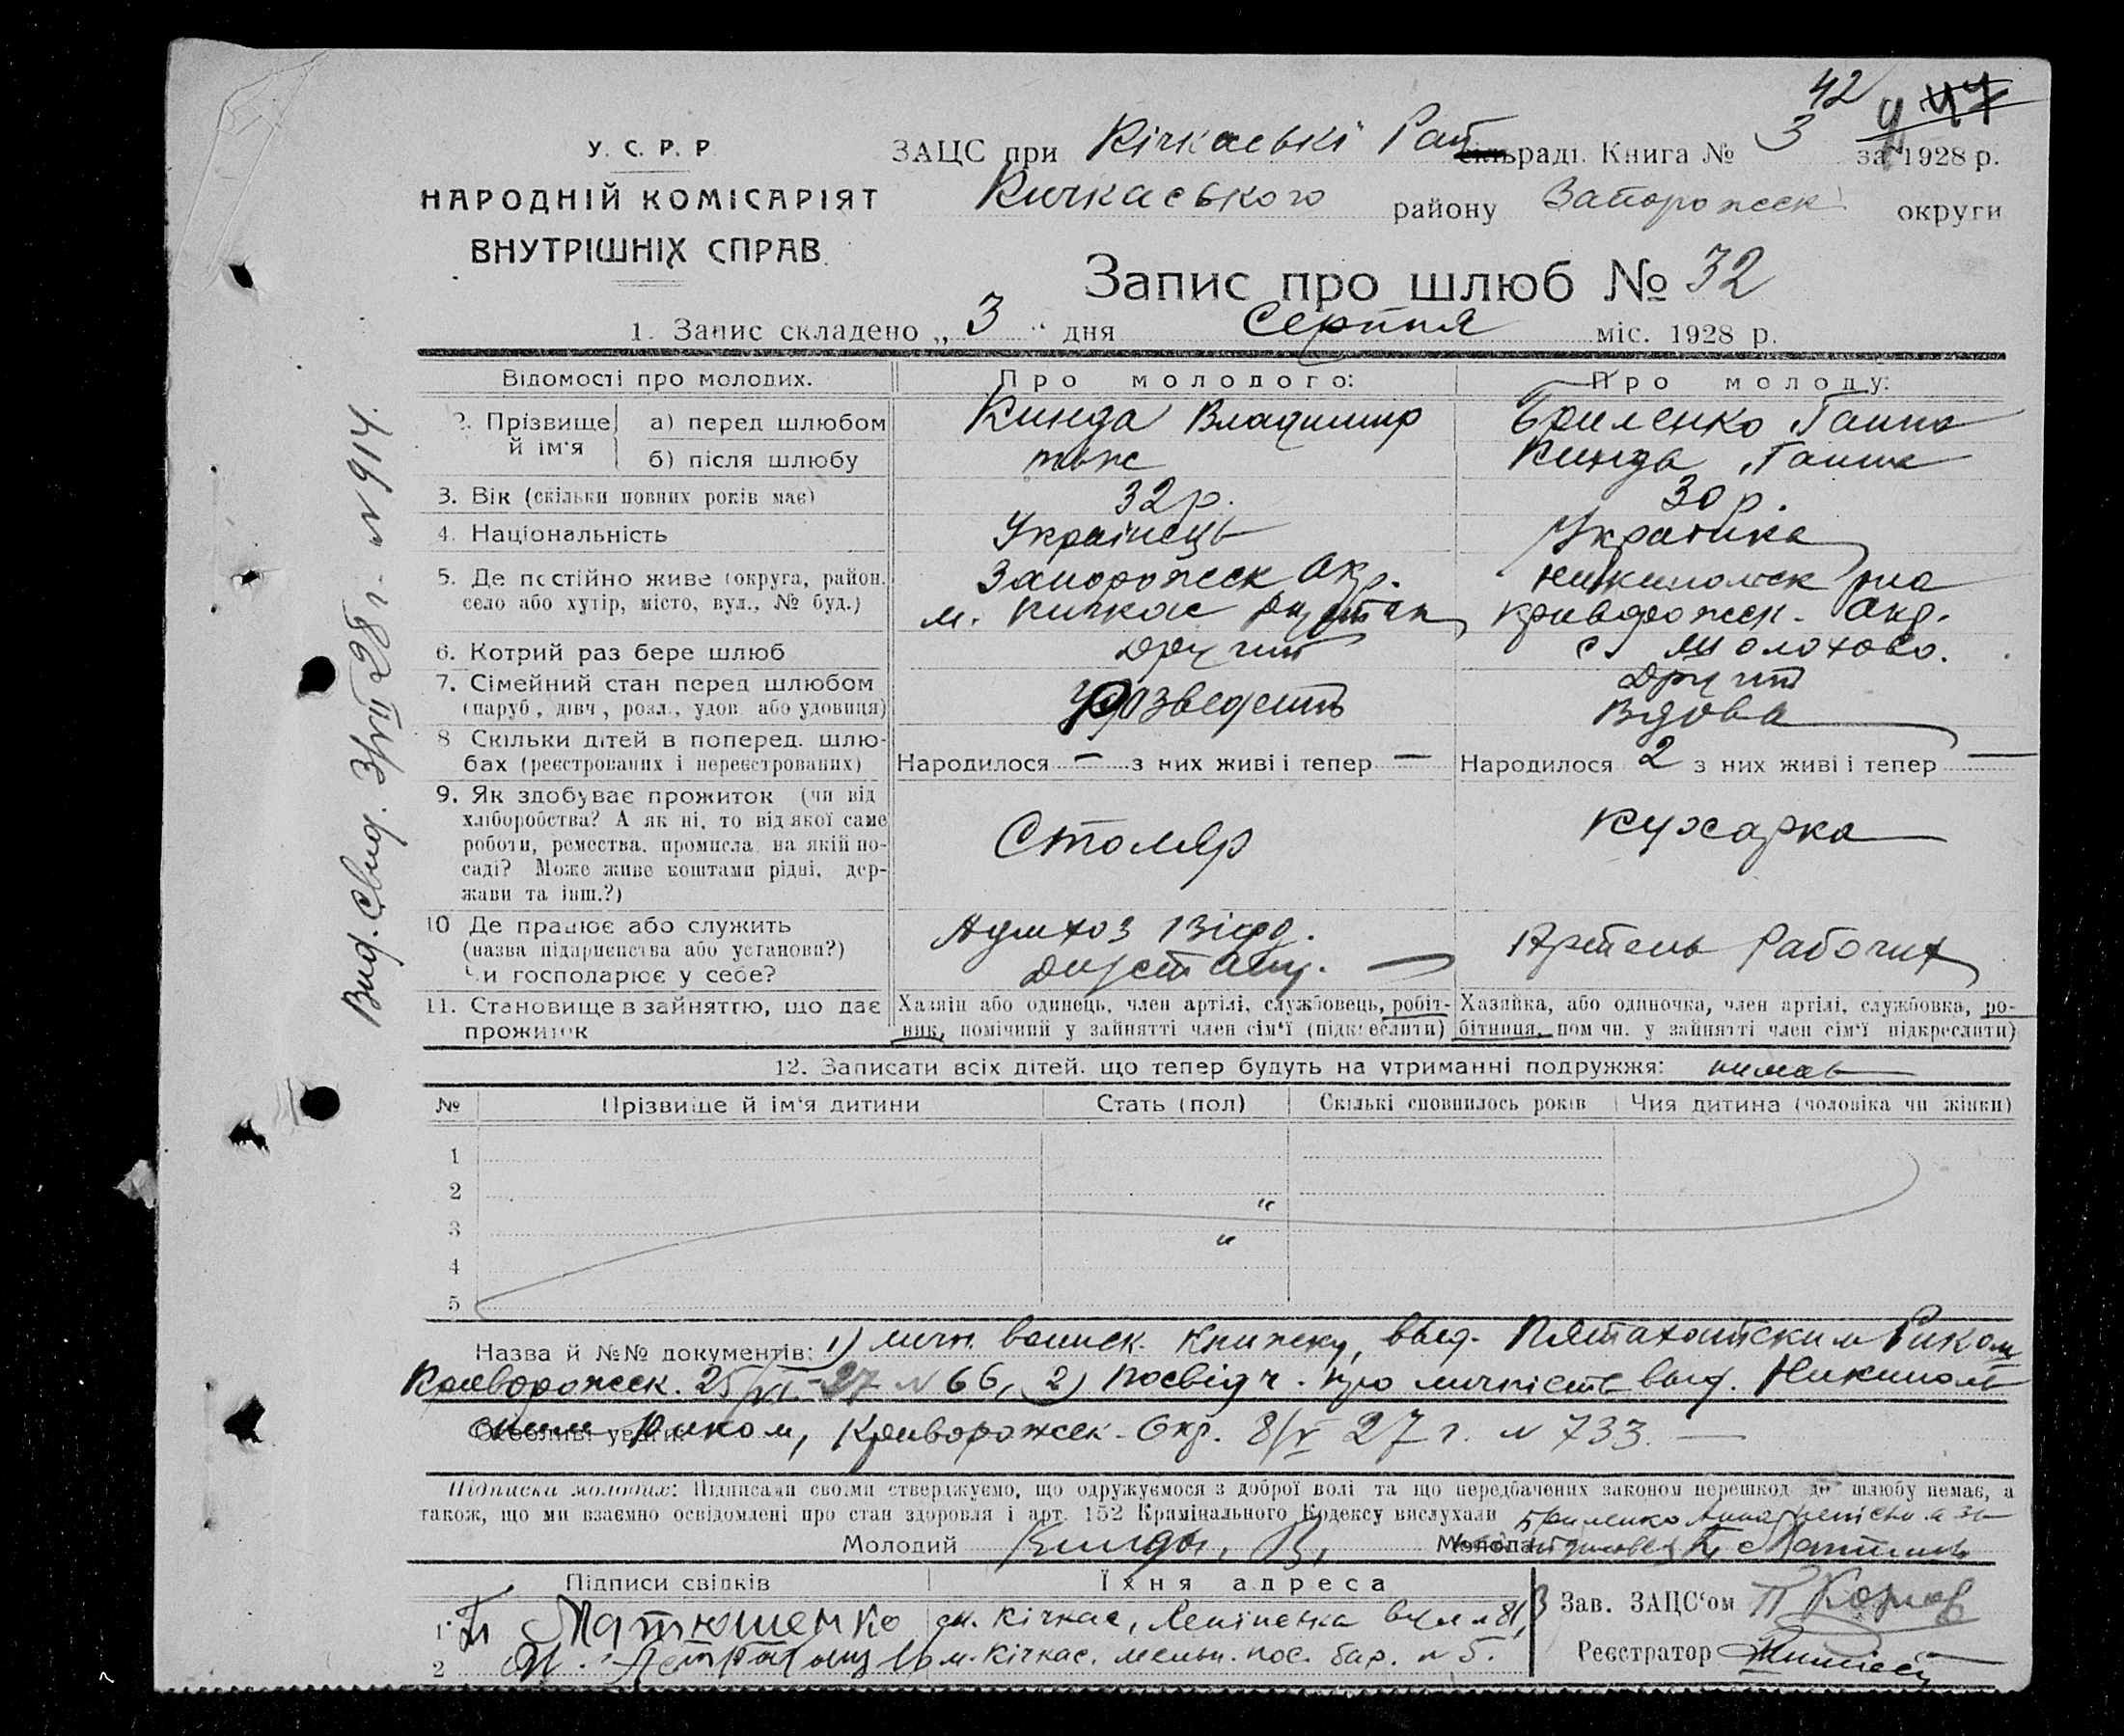 42
47
У. С. Р. Р.
НАРОДНІЙ КОМІСАРІЯТ
ВНУТРІШНІХ СПРАВ.
ЗАЦС при Кічкаські Рай раді. Книга № 3 за 1928 р.
Кичкаського району Запорожск округи
Запис про шлюб № 32
1. Запис складено „ 3 “ дня Серпня міс. 1928 р.
Відомості про молодих. Про молодого: Про молоду:
2. Прізвище й ім'я а) перед шлюбом Кинда Владимир Бриленко Ганна
б) після шлюбу тож Кинда Ганна
3. Вік (скільки повних років має) 32 р. 30 р.
4. Національність Українець Українка
5. Де постійно живе (округа, район, Запорожск Окр.
село або хутір, місто, вул., № буд.) м. Кичкас Криворожск. Окр.
с.
6. Котрий раз бере шлюб Другий Другий
7. Сімейний стан перед шлюбом розведений Вдова
(паруб., дівч., розл., удов. або удовиця)
8 Скільки дітей в поперед. шлю-
бах (реєстрованих і нереєстрованих) Народилося — з них живі і тепер — Народилося 2 з них живі і тепер —
9. Як здобуває прожиток (чи від
хліборобства? А як ні, то від якої саме
роботи, ремества, промисла на якій по-
саді? Може живе коштами рідні, дер-
жави та інш.?)
Столяр Кухарка
10 Де працює або служить
(назва підприємства або установи?)
Чи господарює у себе?
Відд. Артель Рабочих
11. Становище в зайняттю, що дає
прожиток
Хазяїн або одинець, член артілі, службовець, робіт-
ник, помічний у зайнятті член сім'ї (підкреслити)
Хазяйка, або одиночка, член артілі, службовка, ро-
бітниця, пом чн. у зайнятті член сім'ї підкреслити)
12. Записати всіх дітей, що тепер будуть на утриманні подружжя: нимає
№ Прізвище й ім'я дитини Стать (пол) Скількі сповнилось років Чия дитина (чоловіка чи жінки)
1
2
3
4
5
Назва й №№ документів: 1) личн. воинск. Книжку, выд. Пятахатским Риком
Криворожск. 25/VI-27 N 66, 2) Посвідч. про личність выд. Никиполь
Особливі уваги:
ским Риком, Криворожск. Окр. 8/V 27 г. N 733. —
Підписка молодих: Підписами своїми стверджуємо, що одружуємося з доброї волі та що передбачених законом перешкод до шлюбу немає, а
також, що ми взаємно освідомлені про стан здоровля і арт. 152 Кримінального Кодексу вислухали Бриленко Анна
Молодий Кинда, В. Молода
Підписи свідків Їхня адреса
1 Матюшенко м. Кічкас, 81,
2 м. Кічкас. пос. бар. N 5.
Зав. ЗАЦС'ом
Реєстратор
Вид. Свид. 3/VIII 28 г. N 914.